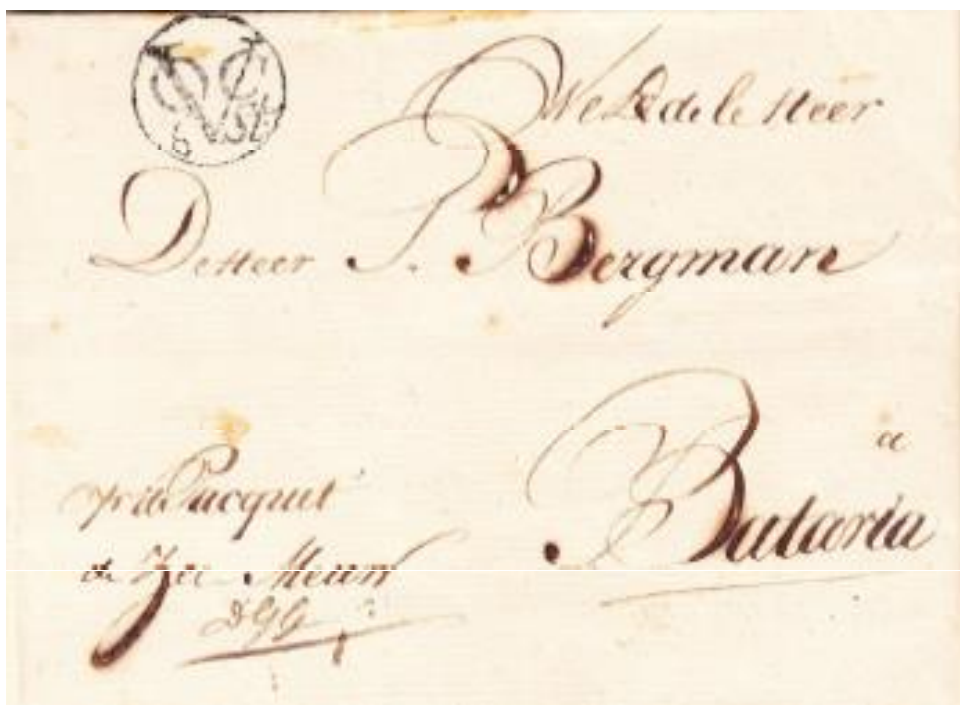 VOC
6 St
WelEdele Heer
De Heer P. Bergman
a
Batavia
pr de Pacquet
de Zee Meuw
DGG